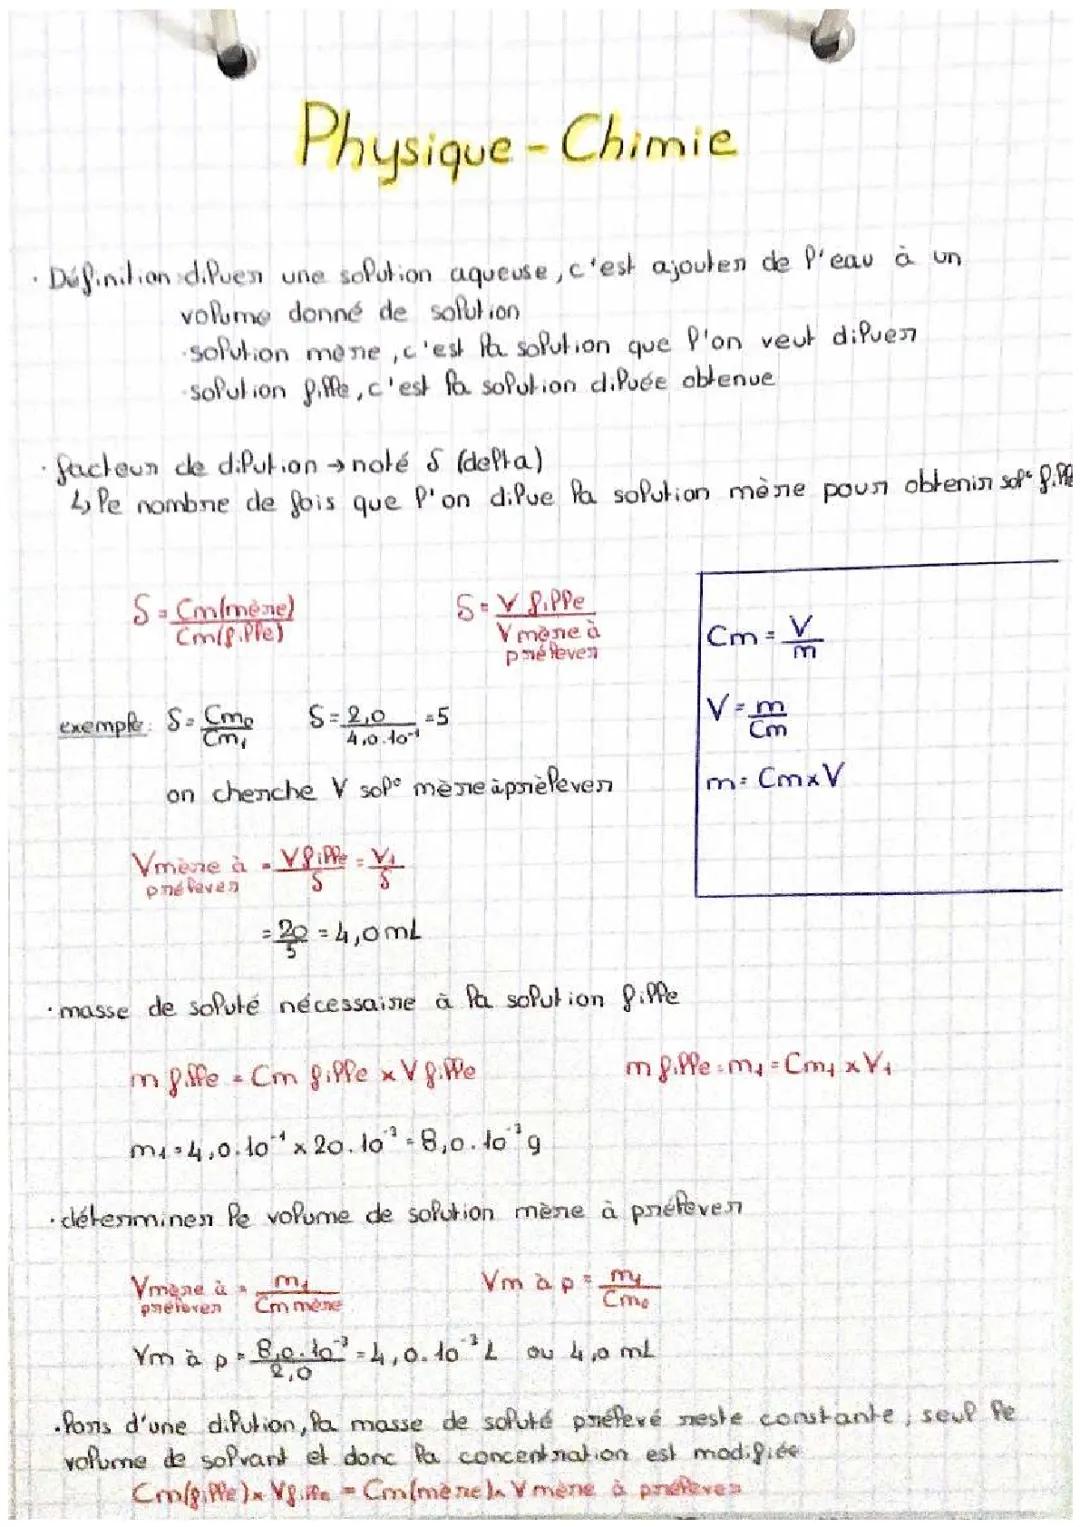 Physique - Chimie
· Définition : diluer une solution aqueuse, c'est ajouter de l'eau à un
volume donné de solution
· solution mère, c'est la solution que l'on veut diluer
· solution fille, c'est la solution diluée obtenue
· facteur de dilution → noté δ (delta)
↳ le nombre de fois que l'on dilue la solution mère pour obtenir sol° fille
δ = Cm(mère) / Cm(fille)
δ = V fille / V mère à prélever
Cm = V / m
V = m / Cm
m = Cm x V
exemple : δ = Cm₀ / Cm₁ δ = 2,0 / 4,0.10⁻¹ = 5
on cherche V sol° mère à prèlever
Vmère à prélever = V fille / δ = V₁ / δ
= 20 / 5 = 4,0 mL
· masse de soluté nécessaire à la solution fille
m fille = Cm fille x V fille
m fille = m₁ = Cm₁ x V₁
m₁ = 4,0.10⁻¹ x 20.10⁻³ = 8,0.10⁻³ g
· déterminer le volume de solution mère à prélever
Vmère à prélever = m₁ / Cm mère
Vm à p = m₁ / Cm₀
Vm à p = 8,0.10⁻³ / 2,0 = 4,0.10⁻³ L ou 4,0 mL
· lors d'une dilution, la masse de soluté prélevé reste constante, seul le
volume de solvant et donc la concentration est modifiée
Cm(fille) x V fille = Cm(mère) x V mère à prélever